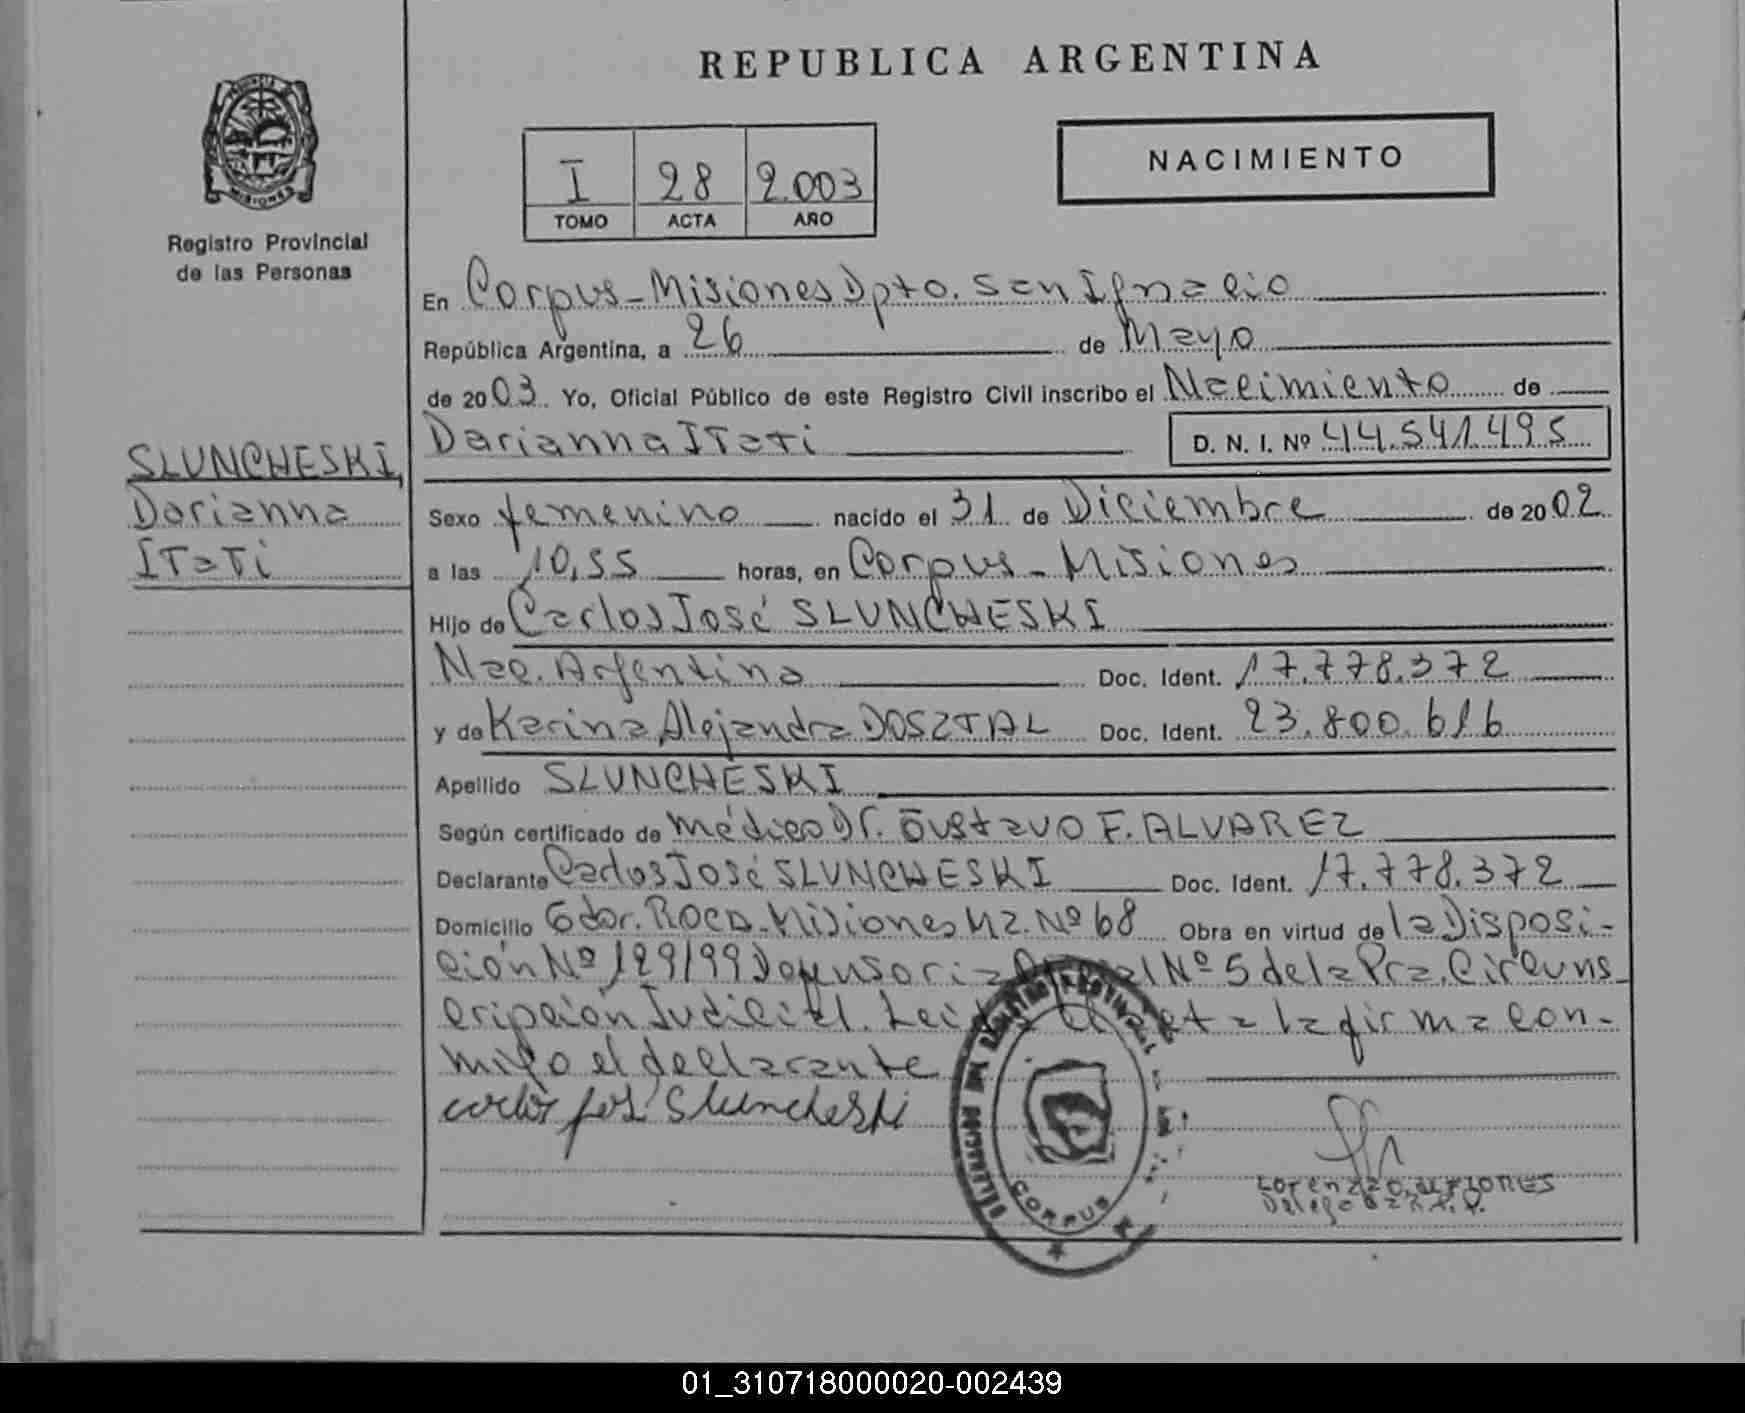 REPUBLICA ARGENTINA
Registro Provincial
de las Personas
I 28 2.003
TOMO ACTA AÑO
NACIMIENTO
En Corpus - Misiones Dpto. San Ignacio
República Argentina, a 26 de Mayo
de 2003. Yo, Oficial Público de este Registro Civil inscribo el Nacimiento de
Darianna Itati D. N. I. Nº 44.541.495
SLUNCHESKI,
Darianna
Itati
Sexo femenino nacido el 31 de Diciembre de 2002
a las 10,55 horas, en Corpus - Misiones
Hijo de Carlos José SLUNCHESKI
Nac. Argentina Doc. Ident. 17.778.372
y de Karina Alejandra DOSZTAL Doc. Ident. 23.800.616
Apellido SLUNCHESKI
Según certificado de médico Dr. Gustavo F. ALVAREZ
Declarante Carlos José SLUNCHESKI Doc. Ident. 17.778.372
Domicilio Gdor. ROCA - Misiones Mz. Nº 68 Obra en virtud de la Disposi-
ción Nº 129/99 Defensoria Nº 5 de la Pra. Circuns-
cripción Judicial. Leida el acta la firma con-
migo el declarante
Carlos José Sluncheski
CORPUS
01_310718000020-002439